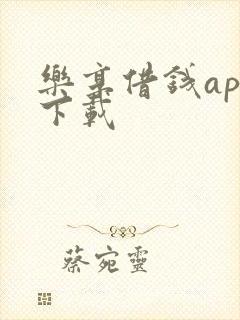 樂享借錢ap
下載
蔡宛靈